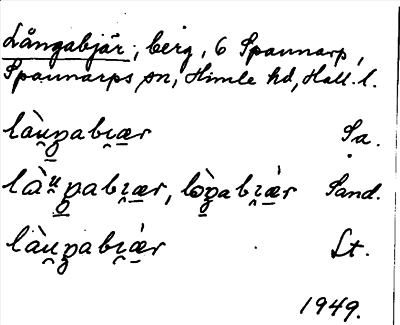 Långabjär, berg, 6 Spannarp,
Spannarps sn, Himle hd, Hall. l.
là̯u̯ŋabı̯ær Sa.
là̯u̯ŋabı̯ær, lòŋabı̯æ̀r Sand.
làu̯ŋabı̯æ̀r Lt.
1949.